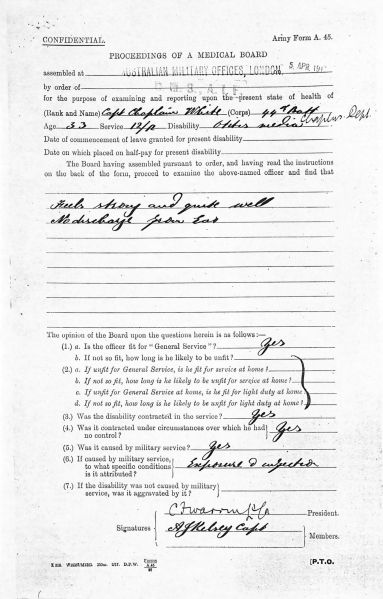 CONFIDENTIAL.
Army Form A. 45.
PROCEEDINGS OF A MEDICAL BOARD
assembled at AUSTRALIAN MILITARY OFFICES, LONDON. 5 APR 191
by order of D. M. S., A. I. F.
for the purpose of examining and reporting upon the present state of health of
(Rank and Name) Capt Chaplain White (Corps) 44th Batt
Age 33 Service 12/12 Disability Otitis media Chaplns Dept.
Date of commencement of leave granted for present disability
Date on which placed on half-pay for present disability
The Board having assembled pursuant to order, and having read the instructions
on the back of the form, proceed to examine the above-named officer and find that
Feels strong and quite well
No discharge from Ear
The opinion of the Board upon the questions herein is as follows:—
(1.) a. Is the officer fit for "General Service"? Yes
b. If not so fit, how long is he likely to be unfit?
(2.) a. If unfit for General Service, is he fit for service at home?
b. If not so fit, how long is he likely to be unfit for service at home?
c. If unfit for General Service at home, is he fit for light duty at home?
d. If not so fit, how long is he likely to be unfit for light duty at home?
(3.) Was the disability contracted in the service? Yes
(4.) Was it contracted under circumstances over which he had no control? Yes
(5.) Was it caused by military service? Yes
(6.) If caused by military service, to what specific conditions is it attributed? Exposure & infection
(7.) If the disability was not caused by military service, was it aggravated by it?
President.
Signatures
AJ Kelsey Capt
Members.
[P.T.O.